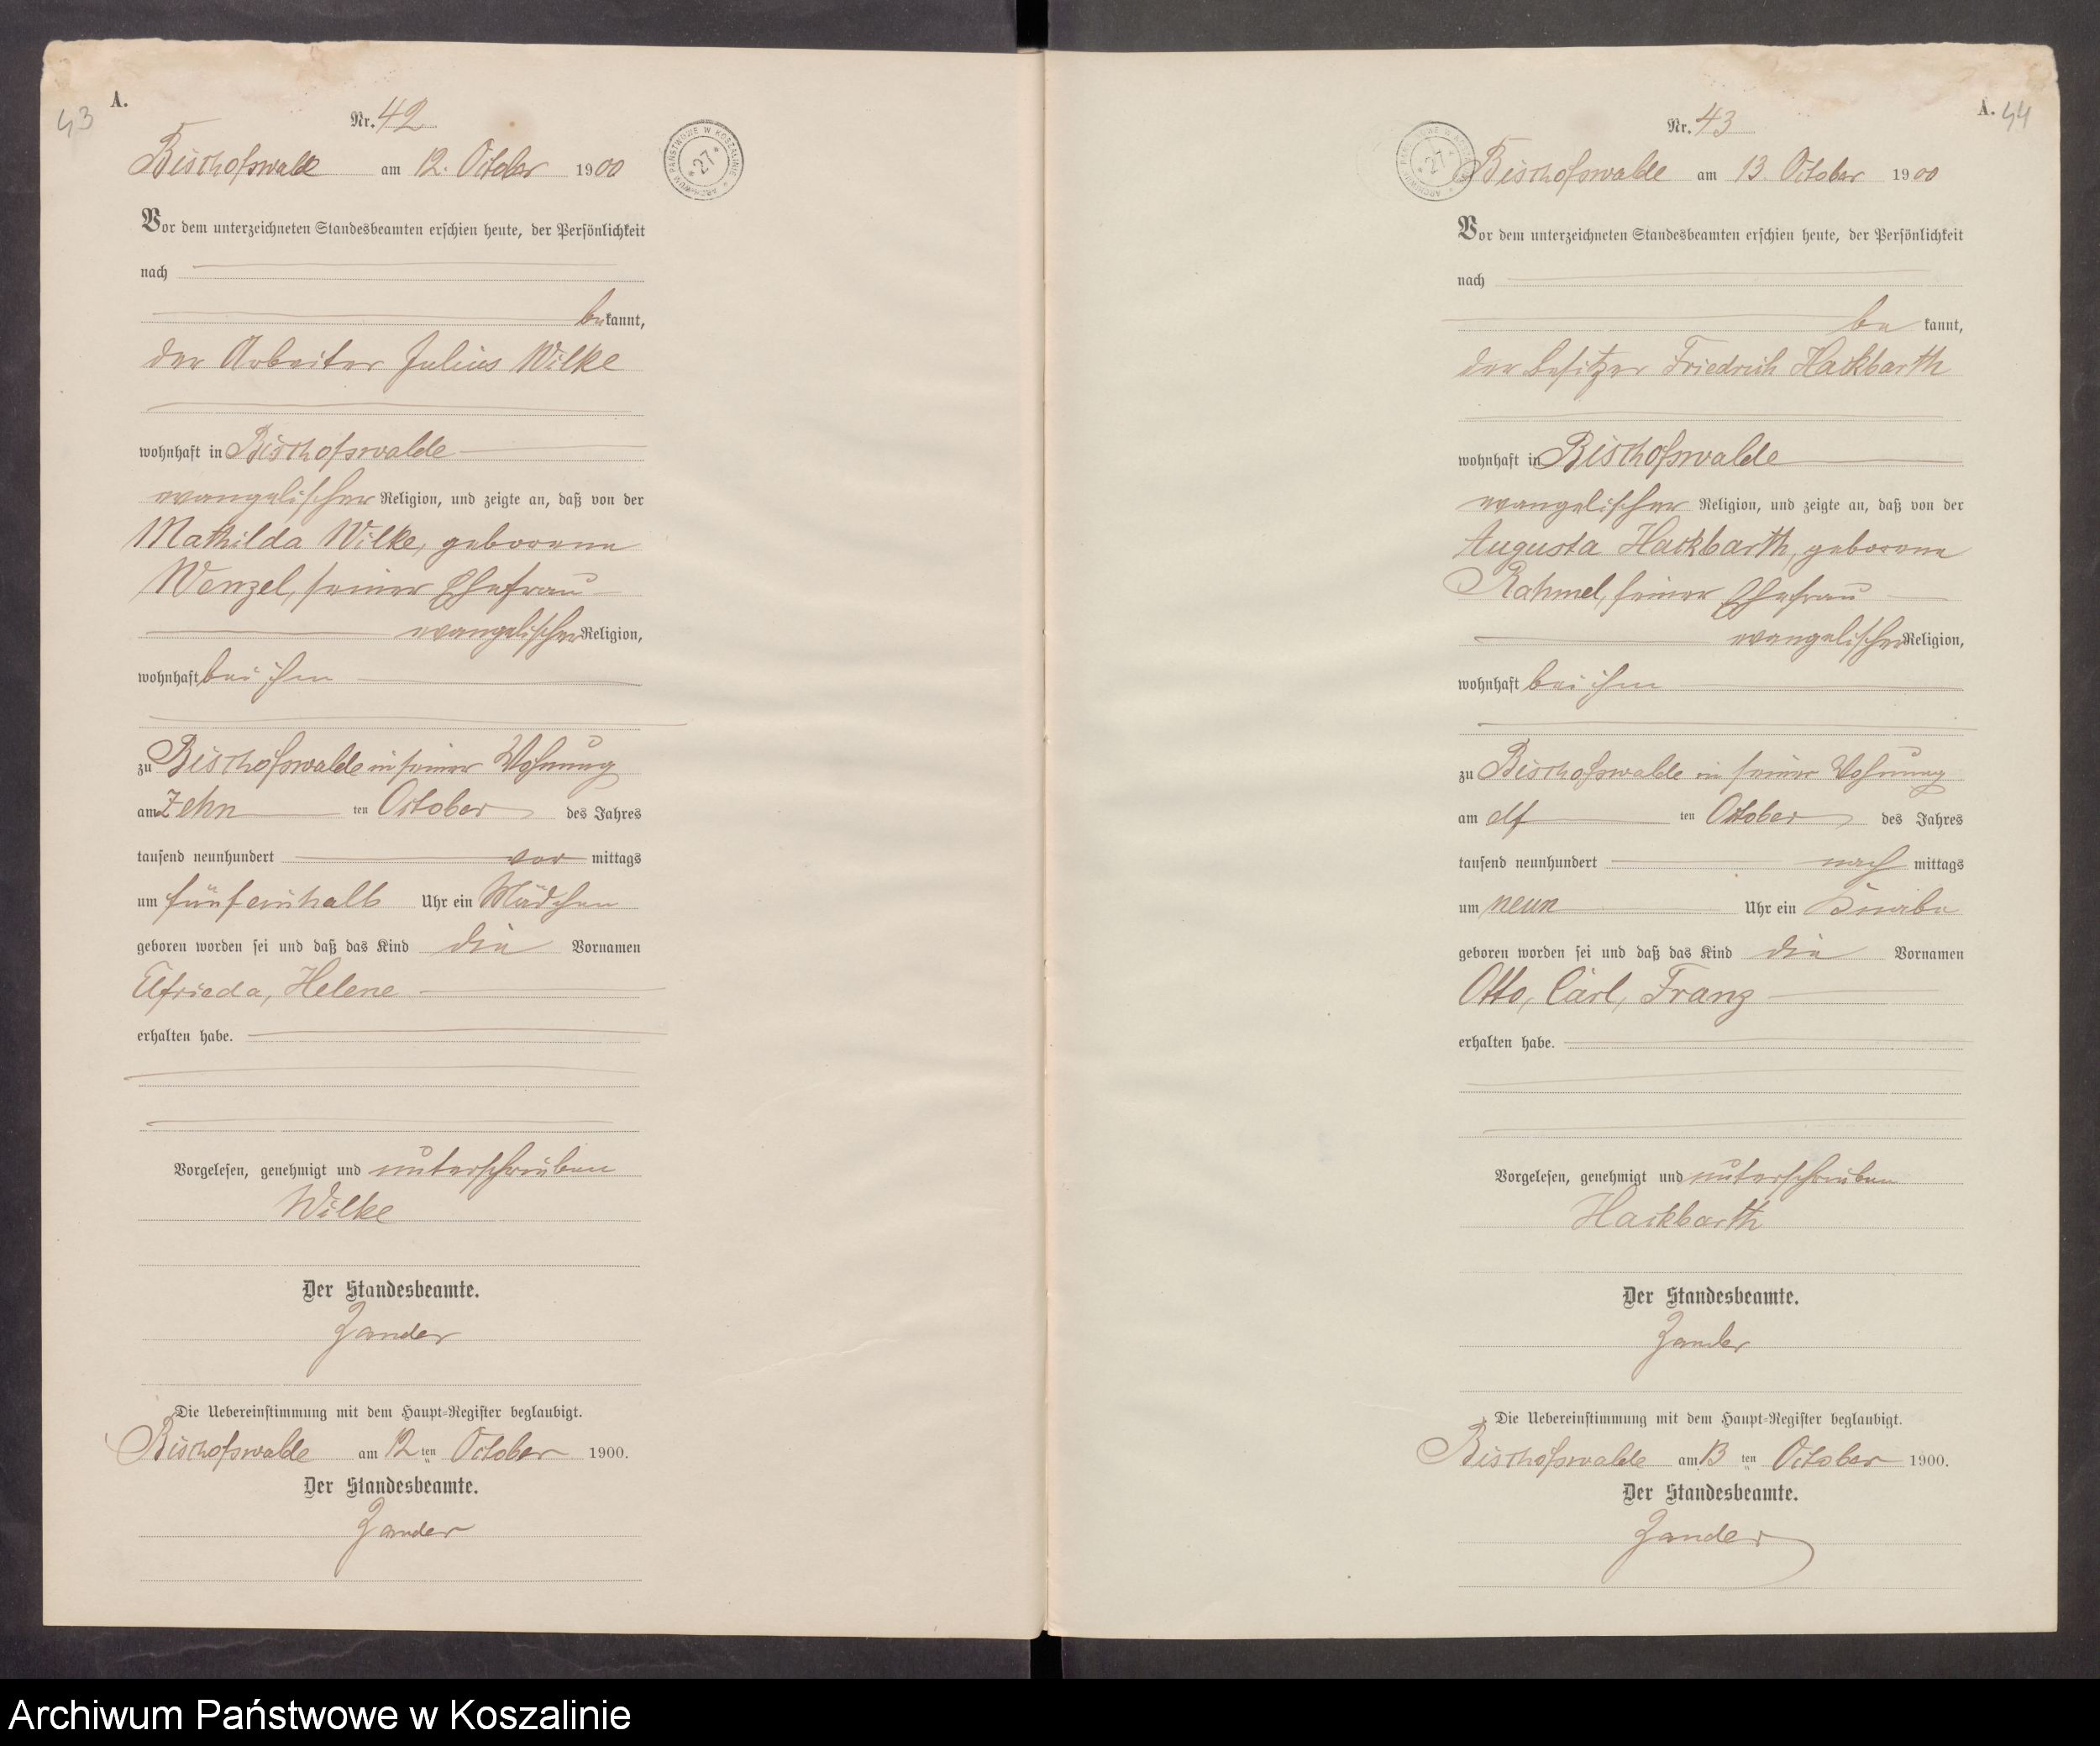 43
A.
Nr. 42
Bischofswalde am 12. October 1900
ARCHIWUM PAŃSTWOWE W KOSZALINIE * 27 *
Vor dem unterzeichneten Standesbeamten erschien heute, der Persönlichkeit
nach
bekannt,
der Arbeiter Julius Wilke
wohnhaft in Bischofswalde
evangelischer Religion, und zeigte an, daß von der
Mathilda Wilke, geborene
Wenzel, seiner Ehefrau
evangelischer Religion,
wohnhaft bei ihm
zu Bischofswalde in seiner Wohnung
am zehn ten October des Jahres
tausend neunhundert vor mittags
um fünfeinhalb Uhr ein Mädchen
geboren worden sei und daß das Kind die Vornamen
Elfrieda, Helene
erhalten habe.
Vorgelesen, genehmigt und unterschrieben
Wilke
Der Standesbeamte.
Zander
Die Uebereinstimmung mit dem Haupt-Register beglaubigt.
Bischofswalde am 12 ten October 1900.
Der Standesbeamte.
Zander
A. 44
Nr. 43
Bischofswalde am 13. October 1900
Vor dem unterzeichneten Standesbeamten erschien heute, der Persönlichkeit
nach
be kannt,
der Besitzer Friedrich Hackbarth
wohnhaft in Bischofswalde
evangelischer Religion, und zeigte an, daß von der
Augusta Hackbarth, geborene
Rahmel, seiner Ehefrau
evangelischer Religion,
wohnhaft bei ihm
zu Bischofswalde in seiner Wohnung
am elf ten October des Jahres
tausend neunhundert nach mittags
um neun Uhr ein Knabe
geboren worden sei und daß das Kind die Vornamen
Otto, Carl, Franz
erhalten habe.
Vorgelesen, genehmigt und unterschrieben
Hackbarth
Der Standesbeamte.
Zander
Die Uebereinstimmung mit dem Haupt-Register beglaubigt.
Bischofswalde am 13 ten October 1900.
Der Standesbeamte.
Zander
Archiwum Państwowe w Koszalinie